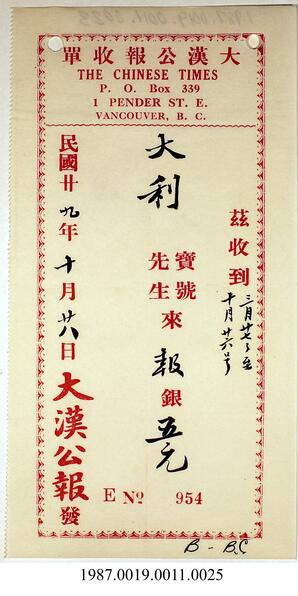 大漢公報收單
THE CHINESE TIMES
P. O. Box 339
1 PENDER ST. E.
VANCOUVER, B. C.
茲收到
三月廿七号至
十月廿六号
大利
寶號
先生
來報銀五元
民國廿九年十月廿八日大漢公報發
E No 954
B - BC
1987.0019.0011.0025